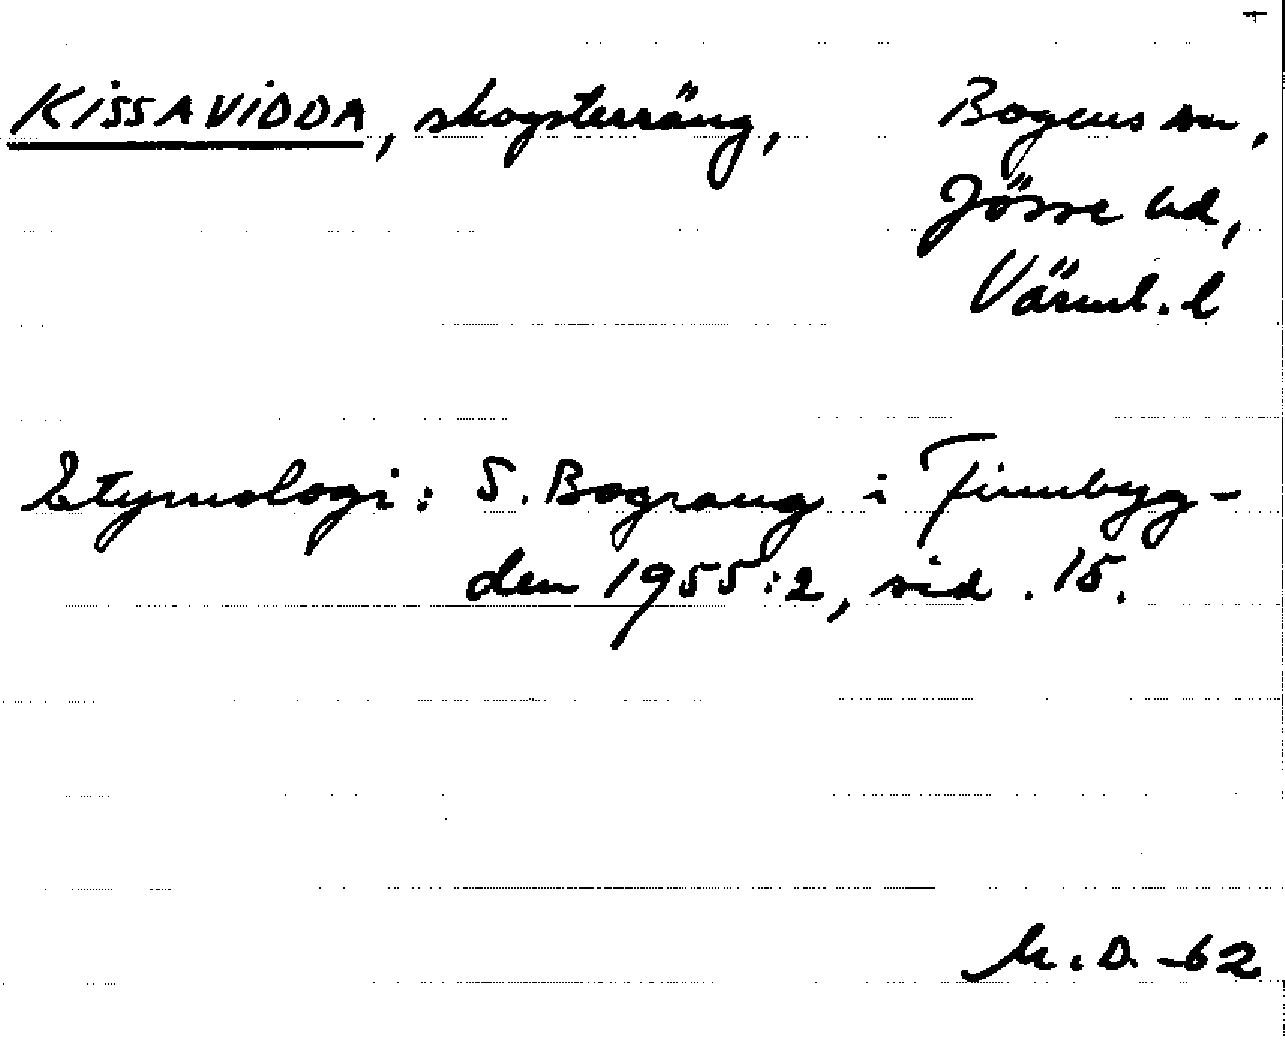 KISSAVIDDA, skogsterräng, Bogens sn,
Jösse hd,
Värml. l
Etymologi: S. Bograng i Finnbyg-
den 1955:2, sid. 15.
M.D. -62